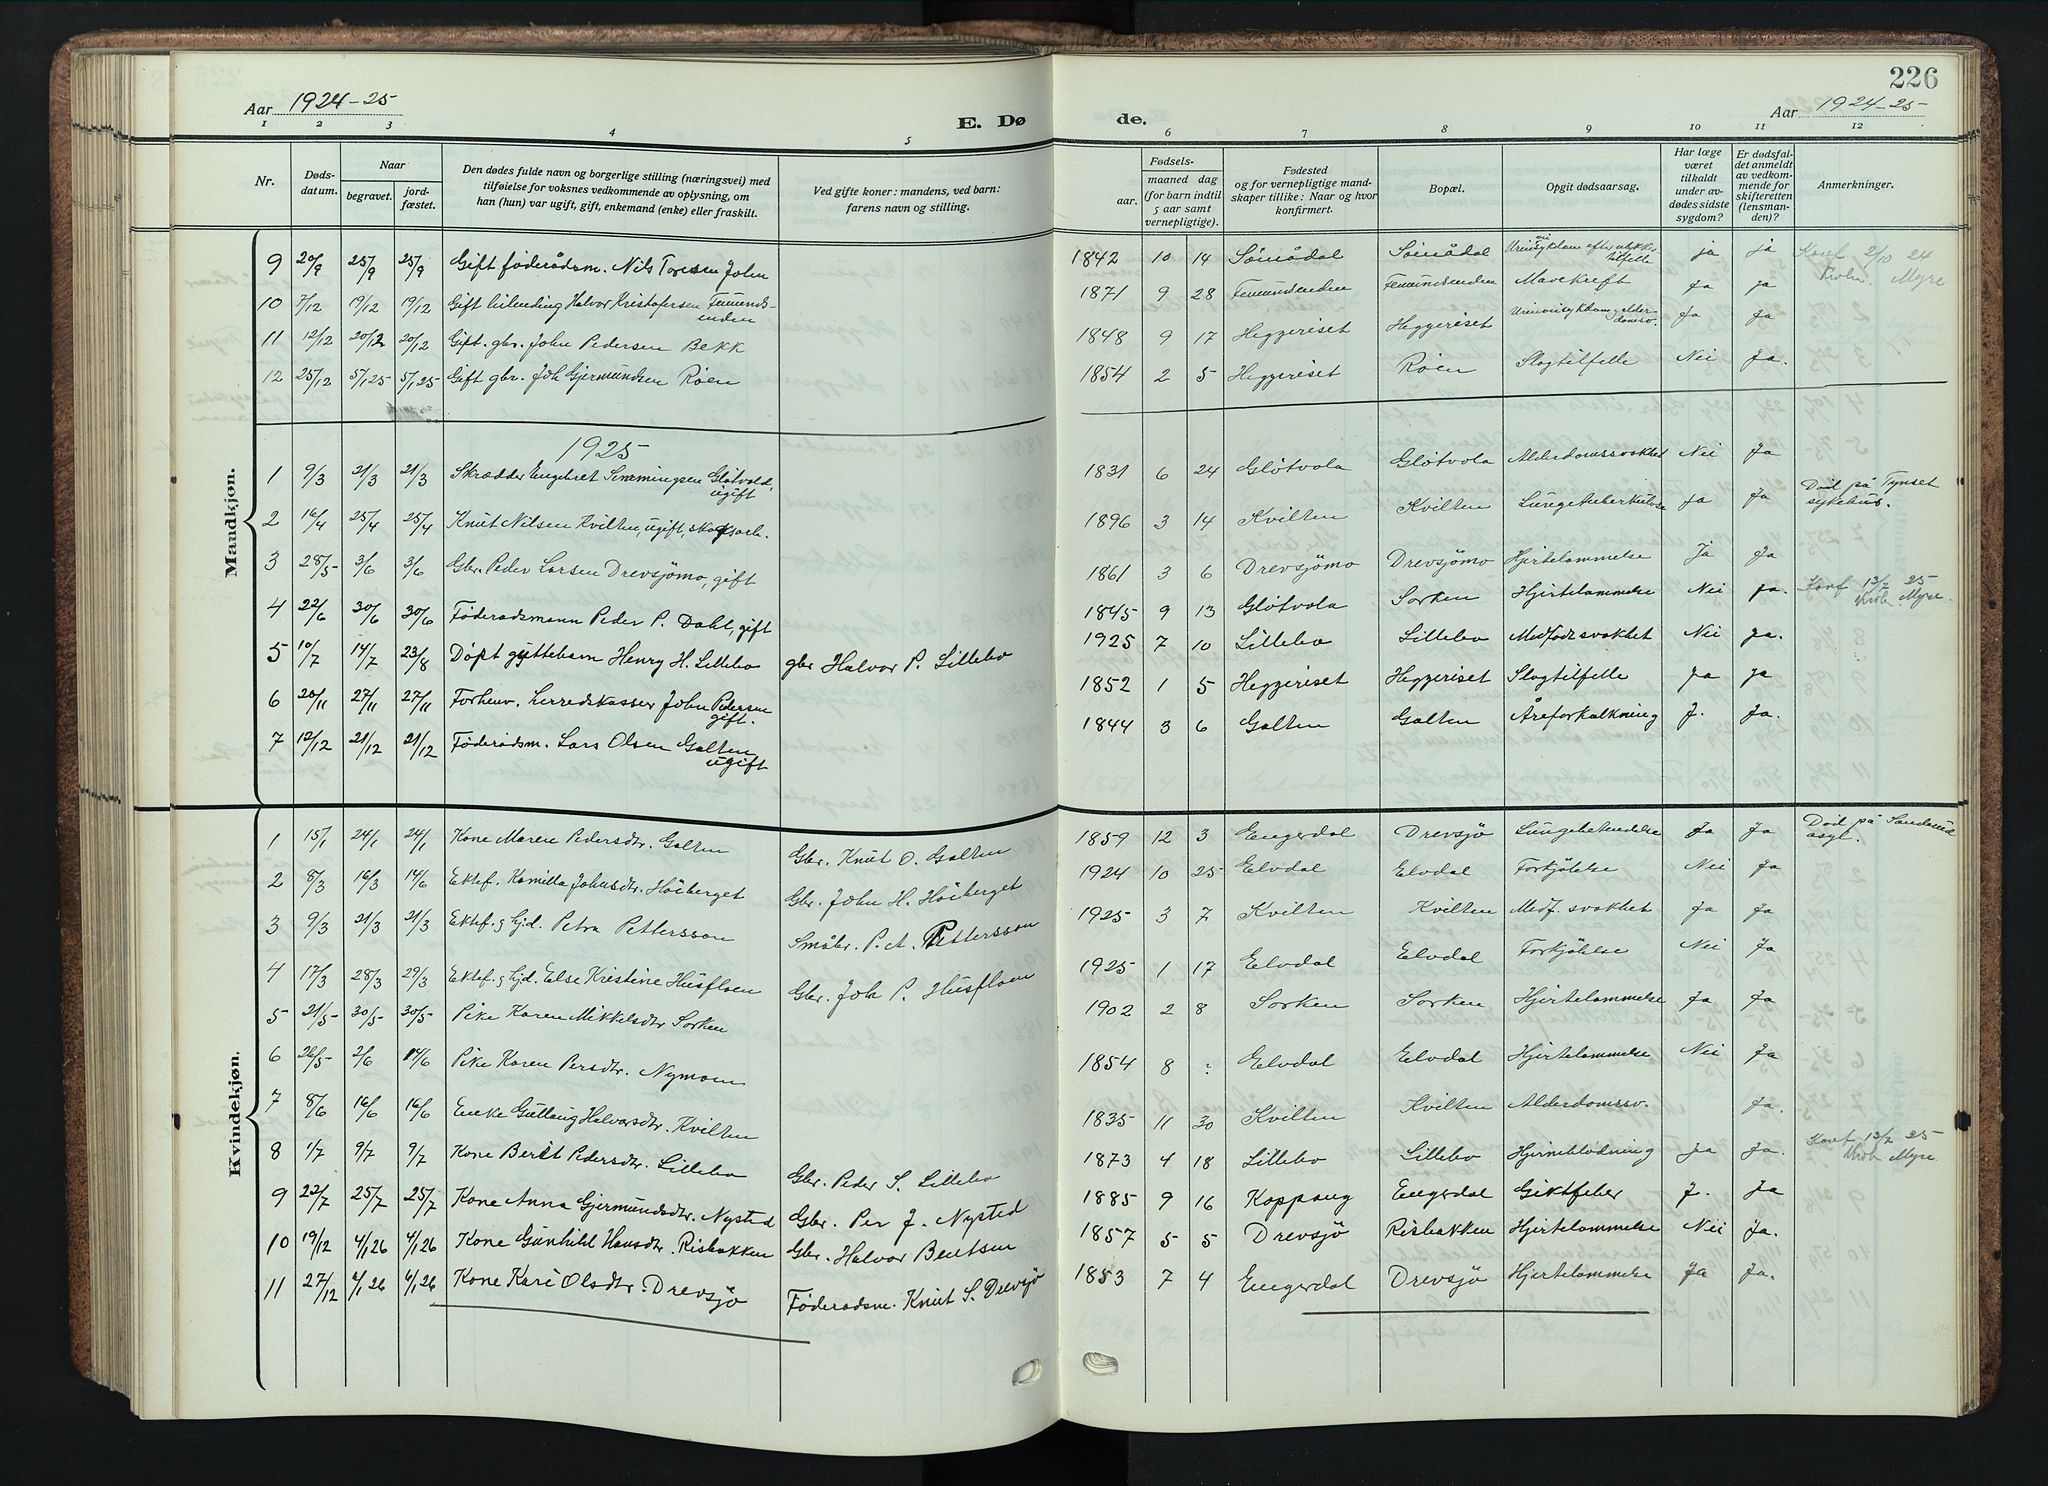 226
Aar 1924-25
E. Dø
de.
Aar 1924-25
1 2 3 4 5 6 7 8 9 10 11 12
Nr.
Døds-
datum.
Naar
begravet.
jord-
fæstet.
Den dødes fulde navn og borgerlige stilling (næringsvei) med
tilføielse for voksnes vedkommende av oplysning, om
han (hun) var ugift, gift, enkemand (enke) eller fraskilt.
Ved gifte koner: mandens, ved barn:
farens navn og stilling.
Fødsels-
aar.
maaned dag
(for barn indtil
5 aar samt
vernepligtige).
Fødested
og for vernepligtige mand-
skaper tillike: Naar og hvor
konfirmert.
Bopæl.
Opgit dødsaarsag.
Har læge
været
tilkaldt
under av-
dødes sidste
sygdom?
Er dødsfal-
det anmeldt
av vedkom-
mende for
skifteretten
(lensman-
den)?
Anmerkninger.
Mandkjøn.
9 20/9 25/9 25/9 Gift føderådsm. Nils Toresen John 1842 10 14 Sømådal Sømådal Urinveisykdom efter ulykkestilfelle ja ja Konf 2/10 24 Myre
10 7/12 19/12 19/12 Gift Halvor Kristofersen Femunds-
enden 1871 9 28 Femundsenden Femundsenden Mavekreft Ja ja
11 12/12 20/12 20/12 Gift. gbr. John Pedersen Bekk 1848 9 17 Heggeriset Heggeriset Urinveisykdom, alder-
domssv. Ja Ja
12 25/12 5/1 25 5/1 25 Gift gbr. Joh Gjermundsen Røen 1854 2 5 Heggeriset Røen Slagtilfelle Nei Ja.
1925
1 9/3 21/3 21/3 Skrædder Engebret Semmingsen Gløtvold,
ugift 1831 6 24 Gløtvola Gløtvola Alderdomssvakhet Nei Ja
2 16/4 25/4 25/4 Knut Nilsen Kvilten, ugift, skogsarb. 1896 3 14 Kvilten Kvilten Lungetuberkulose Ja Ja Død på Tynset
sykehus.
3 28/5 3/6 3/6 Gbr. Peder Larsen Drevsjømo, gift 1861 3 6 Drevsjømo Drevsjømo Hjertelammelse Ja Ja
4 22/6 30/6 30/6 Føderadsmann Peder P. Dahl, gift 1845 9 13 Gløtvola Sorken Hjertelammelse Nei ja. Konf 13/7 25 Myre.
5 10/7 14/7 23/8 Døpt guttebarn Henry H. Lillebo gbr Halvor P. Lillebo 1925 7 10 Lillebo Lillebo Medfødt svakhet Nei ja.
6 20/11 27/11 27/11 Forhenv. herredskasser John Pedersen
gift. 1852 1 5 Heggeriset Heggeriset Slagtilfelle Ja ja
7 12/12 21/12 21/12 Føderådsm. Lars Olsen Galten
ugift 1844 3 6 Galten Galten Åreforkalkning J. Ja.
Kvindekjøn.
1 15/1 24/1 24/1 Kone Maren Pedersdtr. Galten Gbr. Knut O. Galten 1859 12 3 Engerdal Drevsjø Lungebetendelse Ja Ja Død på Sanderud
asyl.
2 8/3 16/3 14/6 Ektef. Kamilla Johnsdtr. Høiberget Gbr. John H. Høiberget 1924 10 25 Elvdal Elvdal Forkjølelse Nei Ja
3 9/3 21/3 21/3 Ektef. g hjd. Petra Pettersson Småbr. P. A. Pettersson 1925 3 7 Kvilten Kvilten Medf. svakhet Ja Ja
4 17/3 28/3 29/3 Ektef. g hjd. Else Kristine Husfloen Gbr. Joh P. Husfloen 1925 1 17 Elvdal Elvdal Forkjølelse Nei Ja
5 21/5 30/5 30/5 Pike Karen Mikkelsdtr Sorken 1902 2 8 Sorken Sorken Hjertelammelse Ja Ja
6 26/5 2/6 14/6 Pike Karen Persdtr. Nymoen 1854 8 ? Elvdal Elvdal Hjertelammelse Nei Ja
7 8/6 16/6 16/6 Enke Gullaug Halvorsdtr. Kvilten 1835 11 30 Kvilten Kvilten Alderdomssv. Ja.
8 1/7 9/7 9/7 Kone Berit Pedersdtr. Lillebo Gbr. Peder S. Lillebo 1873 4 18 Lillebo Lillebo Hjerneblødning Ja Ja. Konf 13/7 25 Myre
9 22/7 25/7 25/7 Kone Anna Gjermundsdtr. Nysted Gbr. Per J. Nysted 1885 9 16 Koppang Engerdal Giktfeber J. Ja
10 19/12 4/1 26 4/1 26 Kone Gunhild Hansdtr. Risbakken Gbr. Halvor Bentsen 1857 5 5 Drevsjø Risbakken Hjertelammelse Nei Ja.
11 27/12 4/1 26 4/1 26 Kone Kari Olsdtr. Drevsjø Føderadsm. Knut S. Drevsjø 1853 7 4 Engerdal Drevsjø Hjertelammelse Ja Ja.